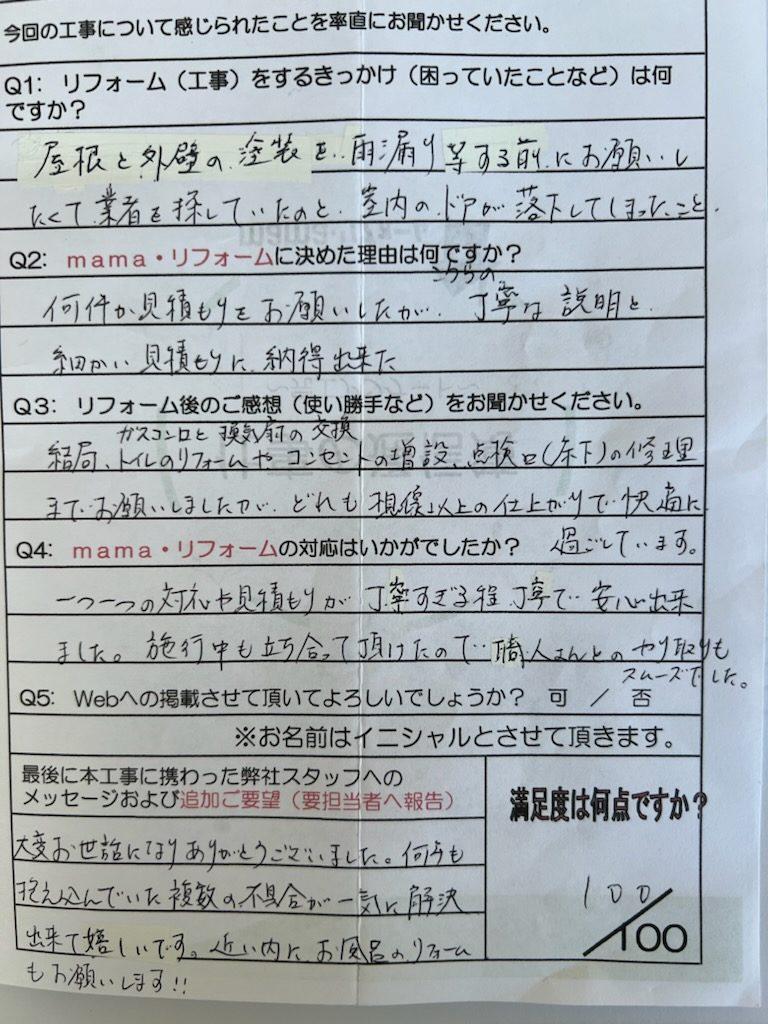 今回の工事について感じられたことを率直にお聞かせください。
Q1: リフォーム（工事）をするきっかけ（困っていたことなど）は何
ですか？
屋根と外壁の塗装を、雨漏り等する前にお願いし
たくて業者を探していたのと、室内のドアが落下してしまったこと。
Q2: mama・リフォームに決めた理由は何ですか？
こちらの
何件か見積もりをお願いしたが、丁寧な説明と
細かい見積もりに納得出来た
Q3: リフォーム後のご感想（使い勝手など）をお聞かせください。
ガスコンロと換気扇の交換
結局、トイレのリフォームやコンセントの増設、点検口(床下)の修理
までお願いしましたが、どれも想像以上の仕上がりで快適に
過ごしています。
Q4: mama・リフォームの対応はいかがでしたか？
一つ一つの対応や見積もりが丁寧すぎる程丁寧で安心出来
ました。施行中も立ち合って頂けたので職人さんとのやり取りも
スムーズでした。
Q5: Webへの掲載させて頂いてよろしいでしょうか？ 可 ／ 否
※お名前はイニシャルとさせて頂きます。
最後に本工事に携わった弊社スタッフへの
メッセージおよび追加ご要望（要担当者へ報告）
大変お世話になりありがとうございました。何年も
抱え込んでいた複数の不具合が一気に解決
出来て嬉しいです。近い内にお風呂のリフォーム
もお願いします!!
満足度は何点ですか？
100
/100